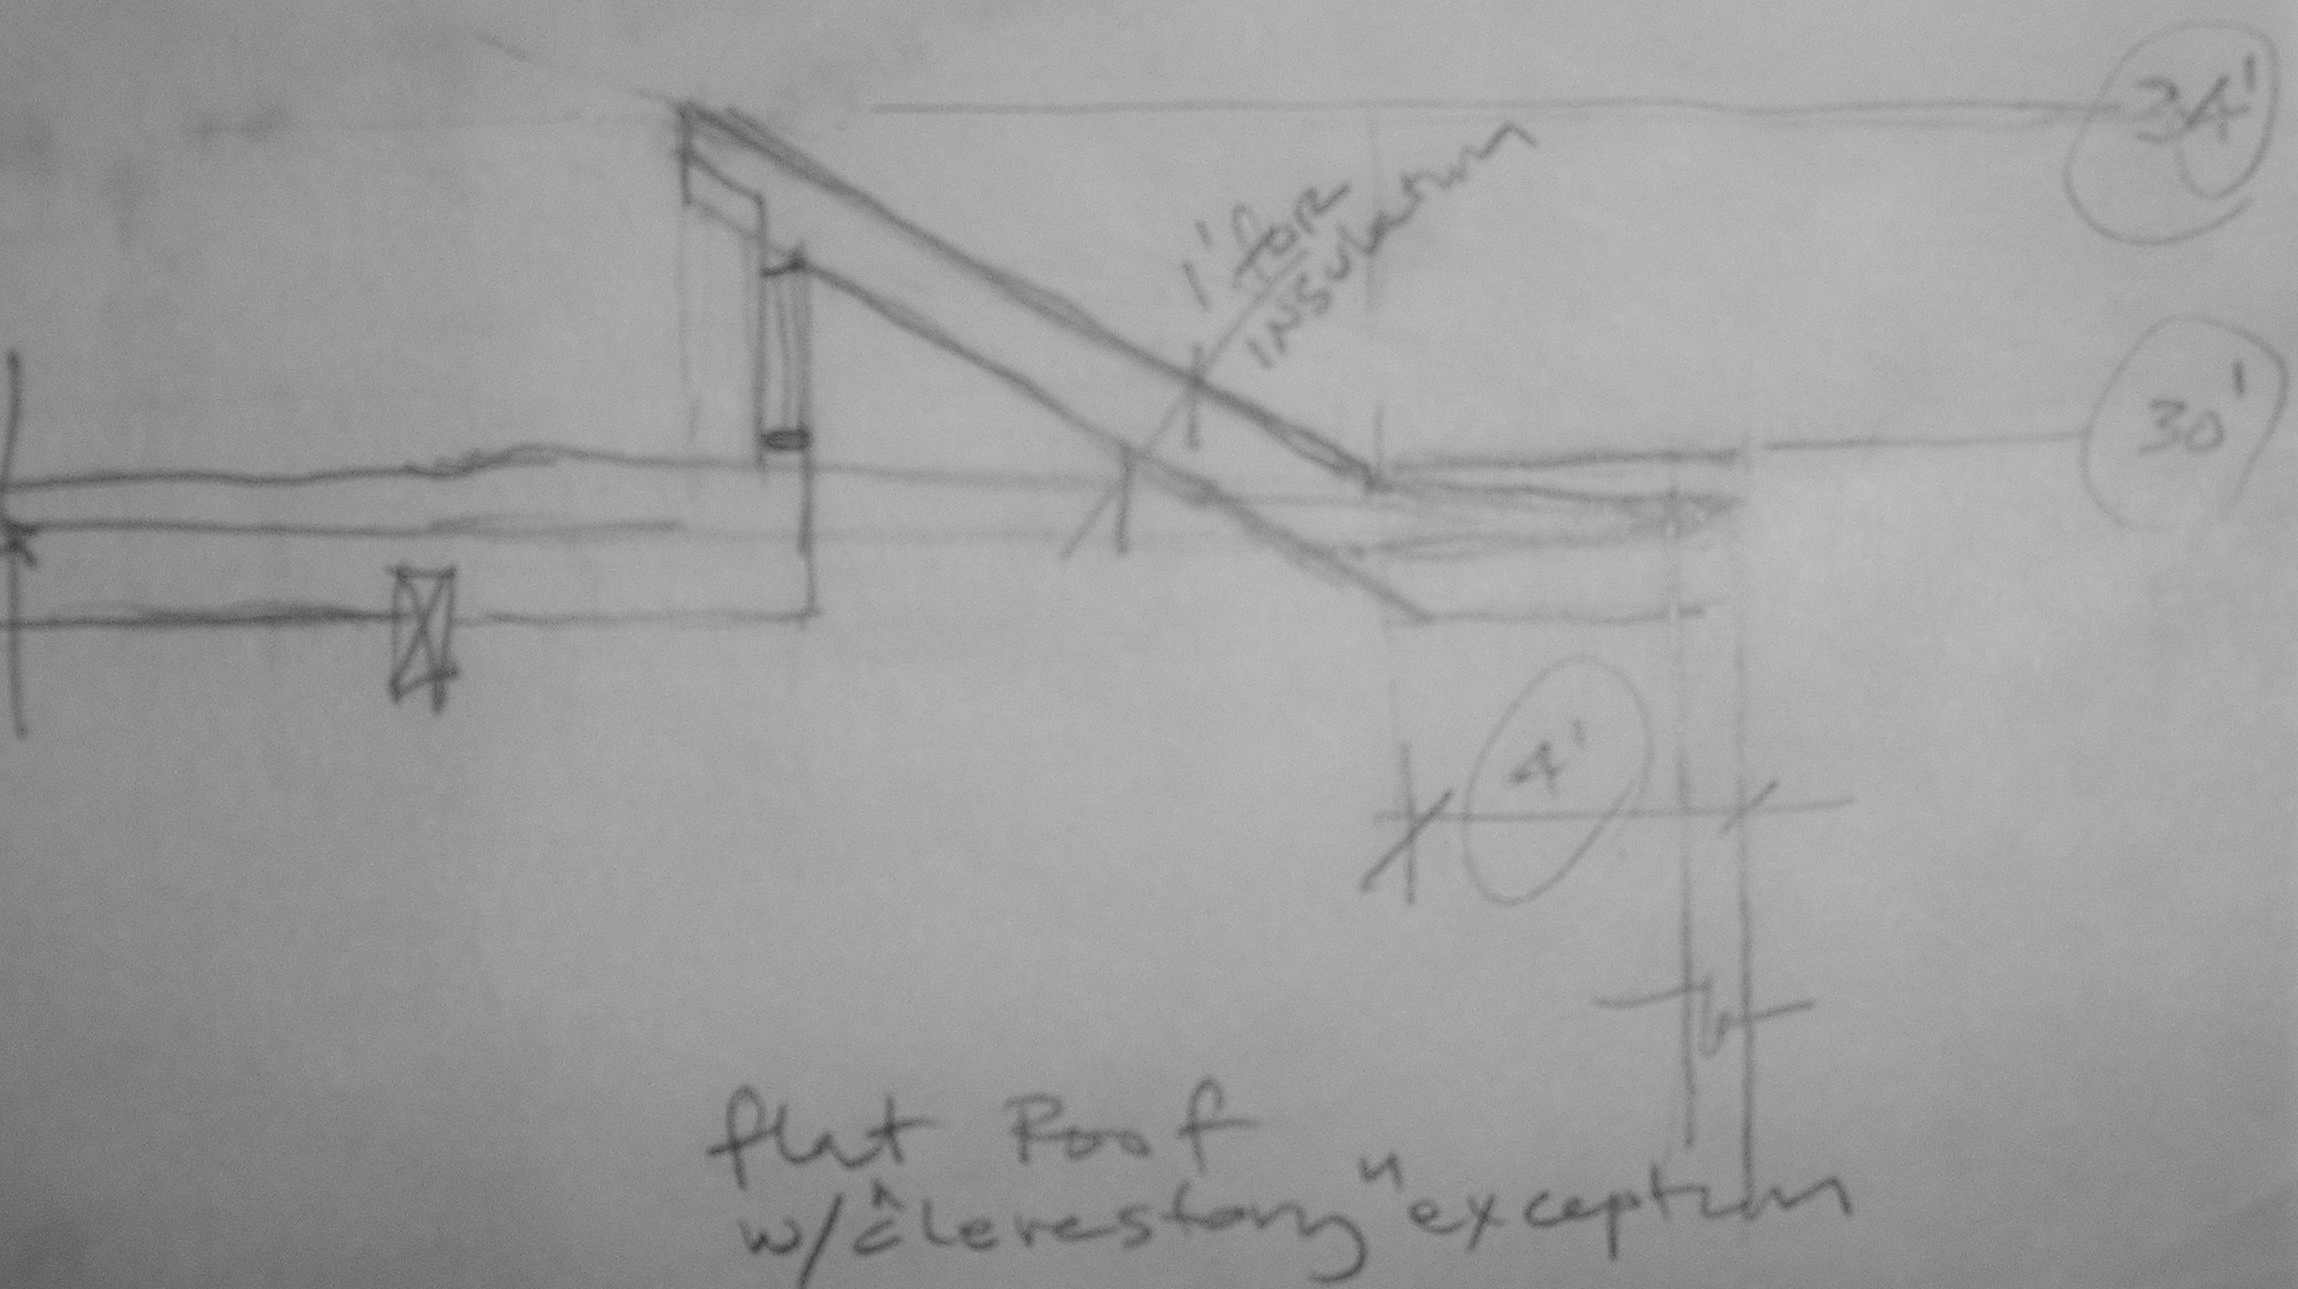 34'
1' for
insulation
30'
4'
flat Roof
w/ "clerestory" exception